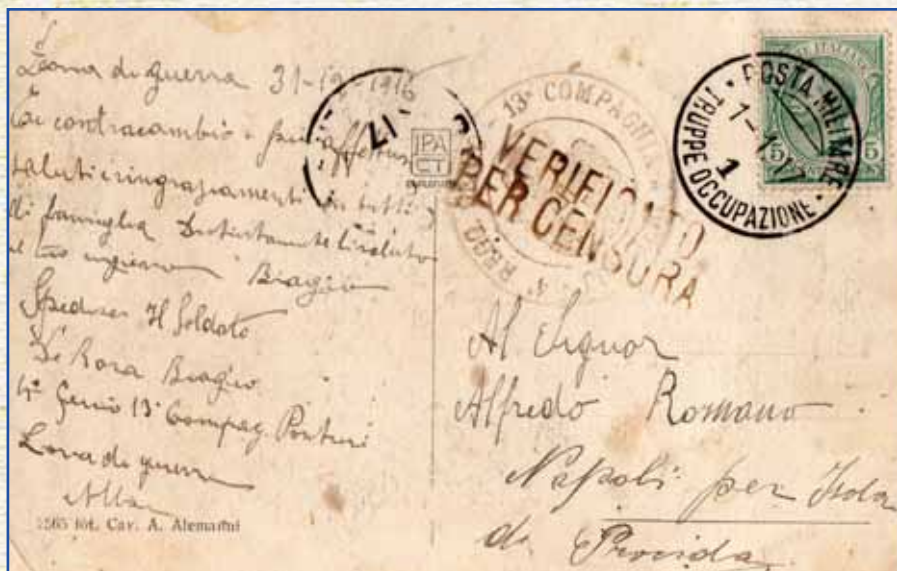 Zona di guerra 31-12-1916
Contracambio i più affettuosi
saluti e ringraziamenti da tutti
di famiglia Distintamente ti saluto
il tuo Biagio
Spedisce Il Soldato
De Rosa Biagio
4° Genio 13ª Compag. Pontieri
Zona di guerra
2565 fot. Cav. A. Alemanni
17
IPA
CT
13ª COMPAGNIA
VERIFICATO
PER CENSURA
POSTA MILITARE
1-1-17
1
TRUPPE OCCUPAZIONE
5 5
Al Signor
Alfredo Romano
Napoli per Isola
di Procida